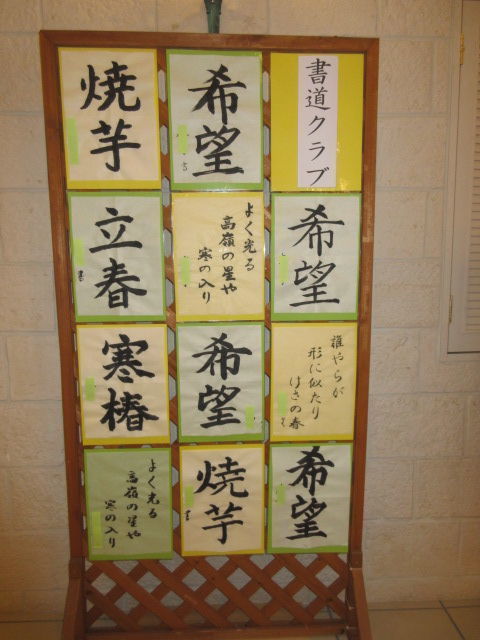 書道クラブ
希望
焼芋
希望
よく光る
高嶺の星や
寒の入り
立春
誰やらが
形に似たり
けさの春
希望
寒椿
希望
焼芋
よく光る
高嶺の星や
寒の入り